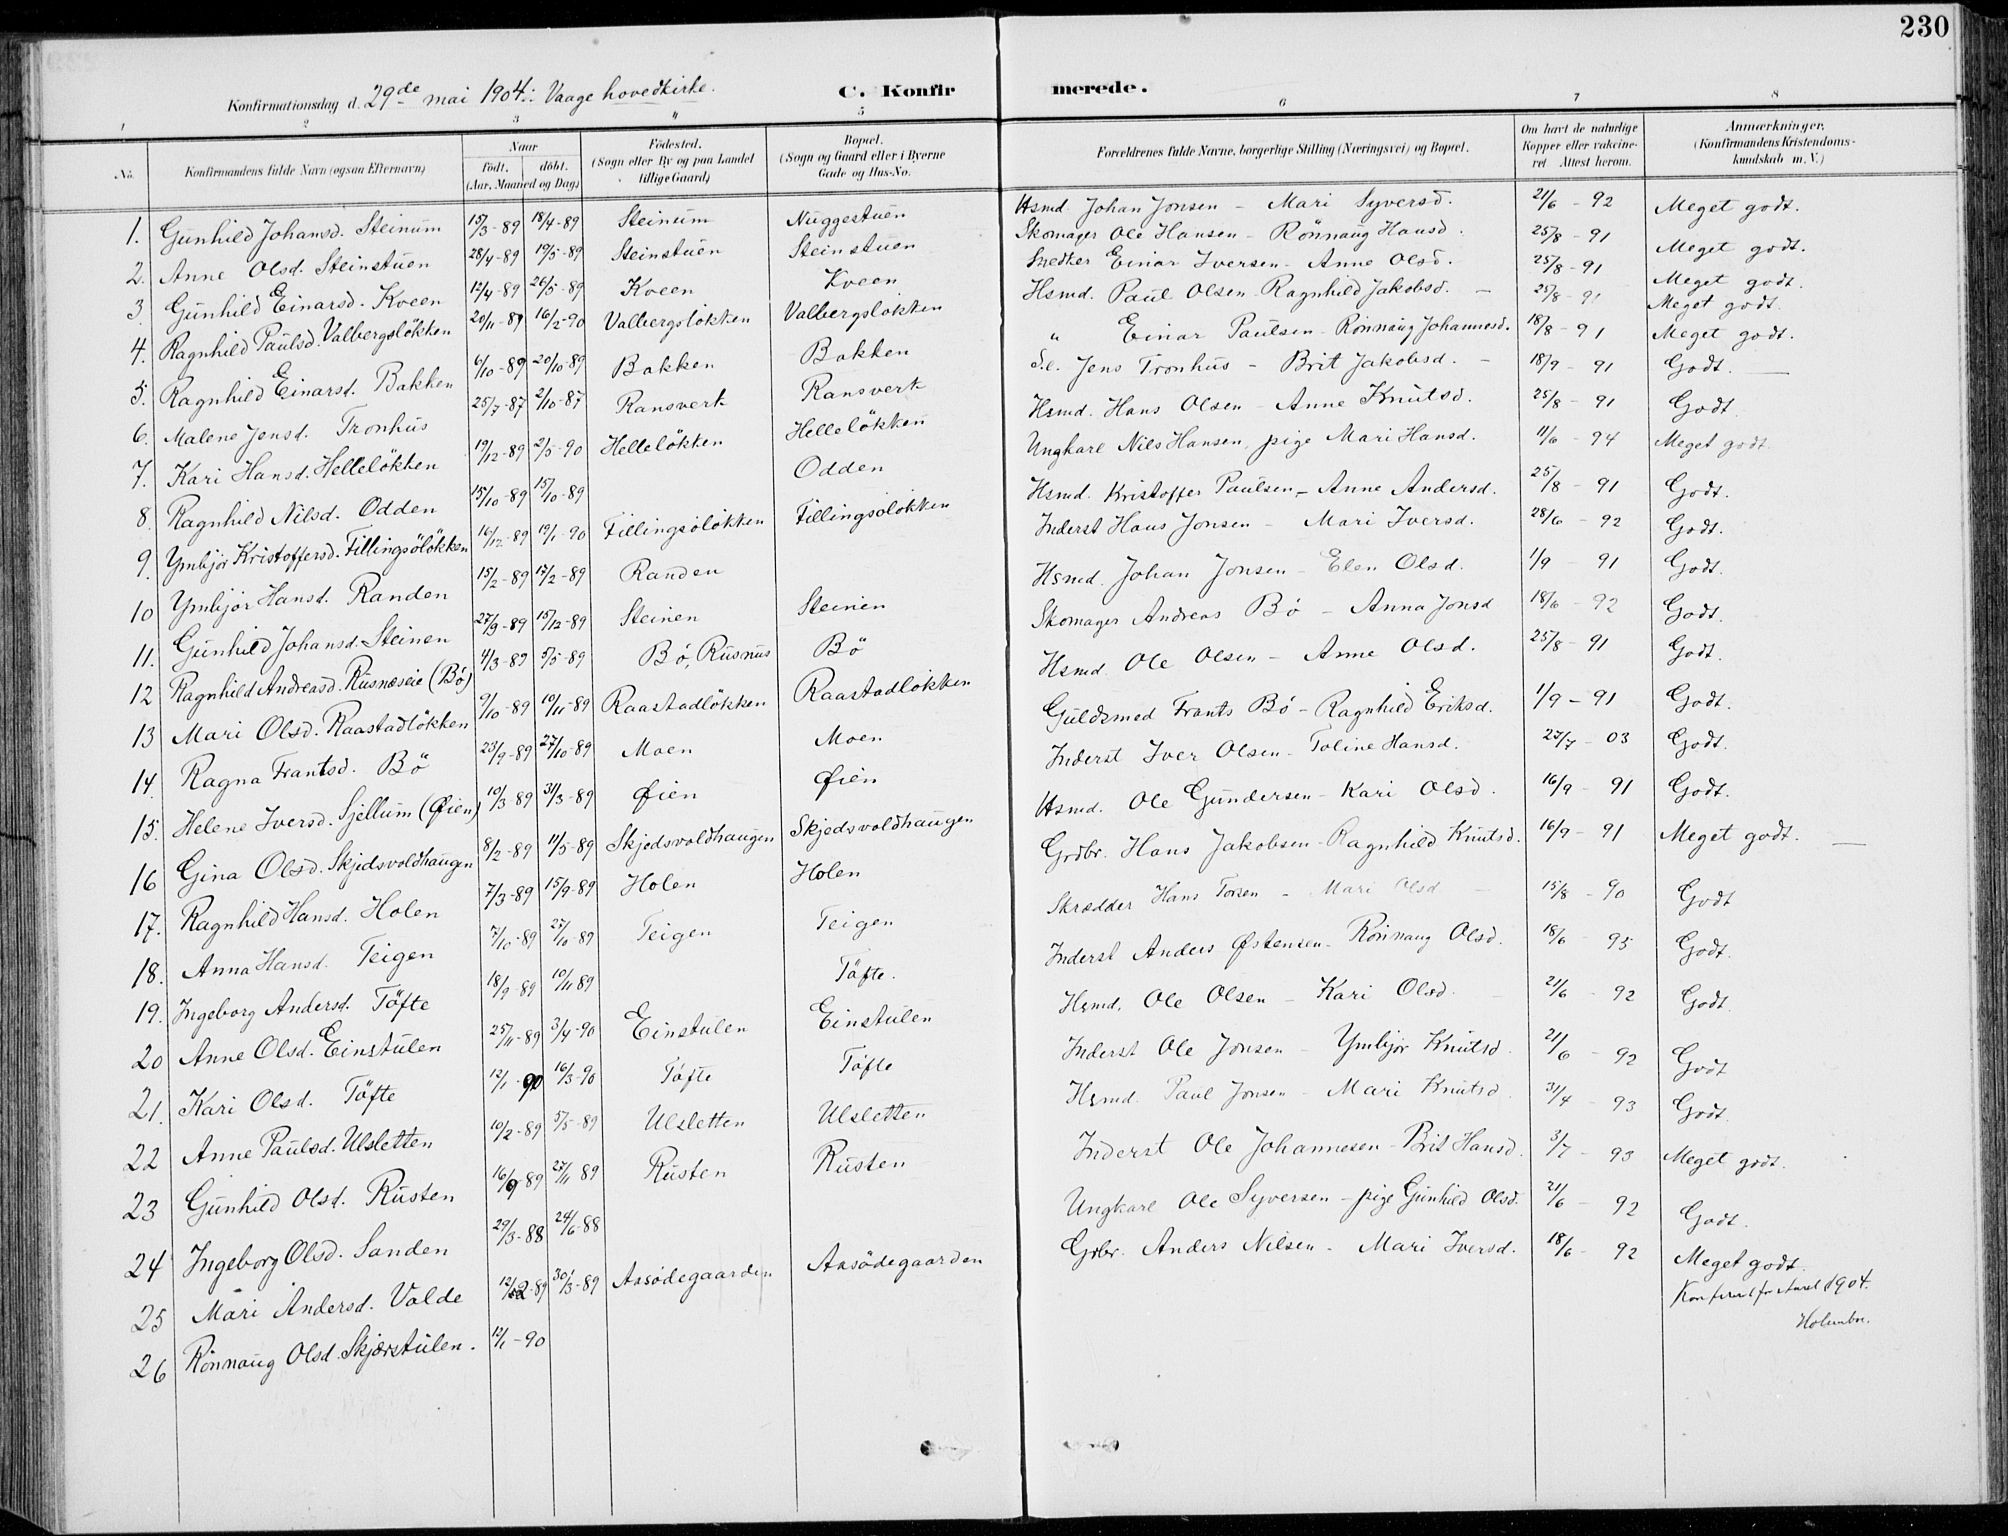 230
Konfirmationsdag d. 29de mai 1904: Vaage hovedkirke. C. Konfirmerede.
1 2 3 4 5 6 7 8
No. Konfirmandens fulde Navn (ogsaa Efternavn) Naar födt. döbt. (Aar, Maaned og Dag) Födested. (Sogn eller By og paa Landet tillige Gaard) Bopæl. (Sogn og Gaard eller i Byerne Gade og Hus-No. Forældrenes fulde Navne, borgerlige Stilling (Næringsvei) og Bopæl. Om havt de naturlige Kopper eller vakcineret. Attest herom. Anmærkninger, (Konfirmandens Kristendomskundskab m. V.)
1. Gunhild Johansd. Steinum 15/3-89 18/4-89 Steinum Nuggestuen Hsmd. Johan Jonsen - Mari Syversd. 21/6 - 92 Meget godt.
2. Anne Olsd. Steinstuen 28/4-89 19/5-89 Steinstuen Steinstuen Skomager Ole Hansen - Rönnaug Hansd. 25/8 - 91 Meget godt.
3 Gunhild Einarsd. Kveen 12/4-89 26/5-89 Kveen Kveen Snedker Einar Iversen - Anne Olsd. 25/8-91 Meget godt.
4. Ragnhild Paulsd. Valbergslökken 20/11-89 16/2-90 Valbergslökken Valbergslokken Hsmd. Paul Olsen - Ragnhild Jakobsd. - 25/8-91 Meget godt.
5. Ragnhild Einarsd. Bakken 6/10-89 20/10-89 Bakken Bakken " Einar Paulsen - Rönnaug Johannesd. 18/8 - 91 Meget godt.
6. Malene Jensd. Tronhus 25/7-87 2/10-87 Ransverk Ransverk S.e. Jens Tronhus - Brit Jakobsd. - 18/9 - 91 Godt.
7. Kari Hansd. Helleløkken 19/12-89 2/5-90 Hellelökken Hellelökken Hsmd. Hans Olsen - Anne Knutsd. 25/8 - 91 Godt.
8. Ragnhild Nilsd. Odden 15/10-89 15/10-89 Odden Ungkarl Nils Hansen, pige Mari Hansd. 11/6 - 94 Meget godt.
9. Ymbjör Kristoffersd. Tillingsölökken 16/12-89 19/1-90 Tillingsölökken Tillingsölokken Hsmd. Kristoffer Paulsen - Anne Andersd. 25/8 - 91 Godt.
10 Ymbjör Hansd. Randen 15/2-89 17/2-89 Randen Inderst Hans Jonsen - Mari Iversd. 28/6 - 92 Godt.
11. Gunhild Johansd. Steinen 27/9-89 15/12-89 Steinen Steinen Hsmd. Johan Jonsen - Elen Olsd. 1/9 - 91 Godt.
12 Ragnhild Andreasd. Rusneseie (Bö) 4/3-89 5/5-89 Bö, Rusnus Bö Skomager Andreas Bö - Anna Jonsd 18/6 - 92 Godt.
13 Mari Olsd. Raastadlökken 9/10-89 10/11-89 Raastadlökken Raastadlökken Hsmd. Ole Olsen - Anne Olsd. 25/8 - 91 Godt.
14. Ragna Frantsd. Bö 23/9-89 27/10-89 Moen Moen Guldsmed Frants Bö - Ragnhild Eriksd. 1/9 - 91 Godt.
15. Helene Iversd. Sjellum (Øien) 10/3-89 31/3-89 Øien Øien Inderst Iver Olsen - Toline Hansd. 23/7 - 03 Godt.
16 Gina Olsd. Skjedsvoldhaugen 8/2-89 11/5-89 Skjedsvoldhaugen Skjedsvoldhaugen Hsmd. Ole Gundersen - Kari Olsd. 16/9 - 91 Godt.
17. Ragnhild Hansd. Holen 7/3-89 15/9-89 Holen Holen Grdbr. Hans Jakobsen - Ragnhild Knutsd. 16/9 - 91 Meget godt.
18. Anna Hansd. Teigen 7/10-89 27/10-89 Teigen Teigen Skrædder Hans Tosen - Mari Olsd - 15/8 - 90 Godt
19. Ingeborg Andersd. Töfte 18/9-89 10/11 89 Töfte. Inderst Anders Østensen - Rönnaug Olsd. 18/6 - 95 Godt.
20 Anne Olsd. Einstulen 25/11-89 3/4-90 Einstulen Einstulen Hsmd. Ole Olsen - Kari Olsd. - 21/6 - 92 Godt.
21. Kari Olsd. Töfte 12/1-90 16/3-90 Töfte Töfte Inderst Ole Jonsen - Ymbjör Knutsd. 21/6 - 92 Godt
22 Anne Paulsd. Ulsletten 10/2-89 5/5-89 Ulsletten Ulsletten Hsmd. Paul Jonsen - Mari Knutsd. 31/4 - 93 Godt.
23 Gunhild Olsd. Rusten 16/9-89 27/11 89 Rusten Rusten Inderst Ole Johannesen - Brit Hansd. 3/7 - 93 Meget godt.
24 Ingeborg Olsd. Sanden 29/3-88 24/6-88 Ungkarl Ole Syversen - pige Gunhild Olsd. 21/6 - 92 Godt.
25 Mari Andersd. Valde 12/2-89 30/3-89 Aasödegaarden Aasödegaarden Grdbr. Anders Nilsen - Mari Iversd. 18/6 - 92 Meget godt.
26 Rönnaug Olsd. Skjærstulen. 12/1-90
1904.